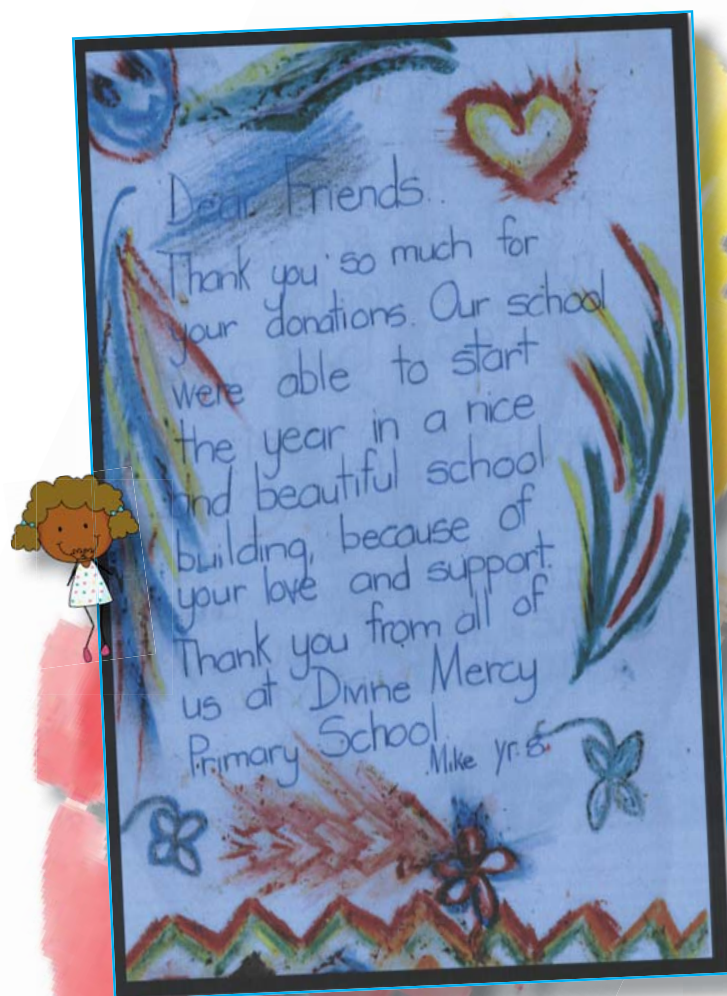 Dear Friends..
Thank you so much for
your donations. Our school
were able to start
the year in a nice
and beautiful school
building, because of
your love and support.
Thank you from all of
us at Divine Mercy
Primary School.
Mike yr.